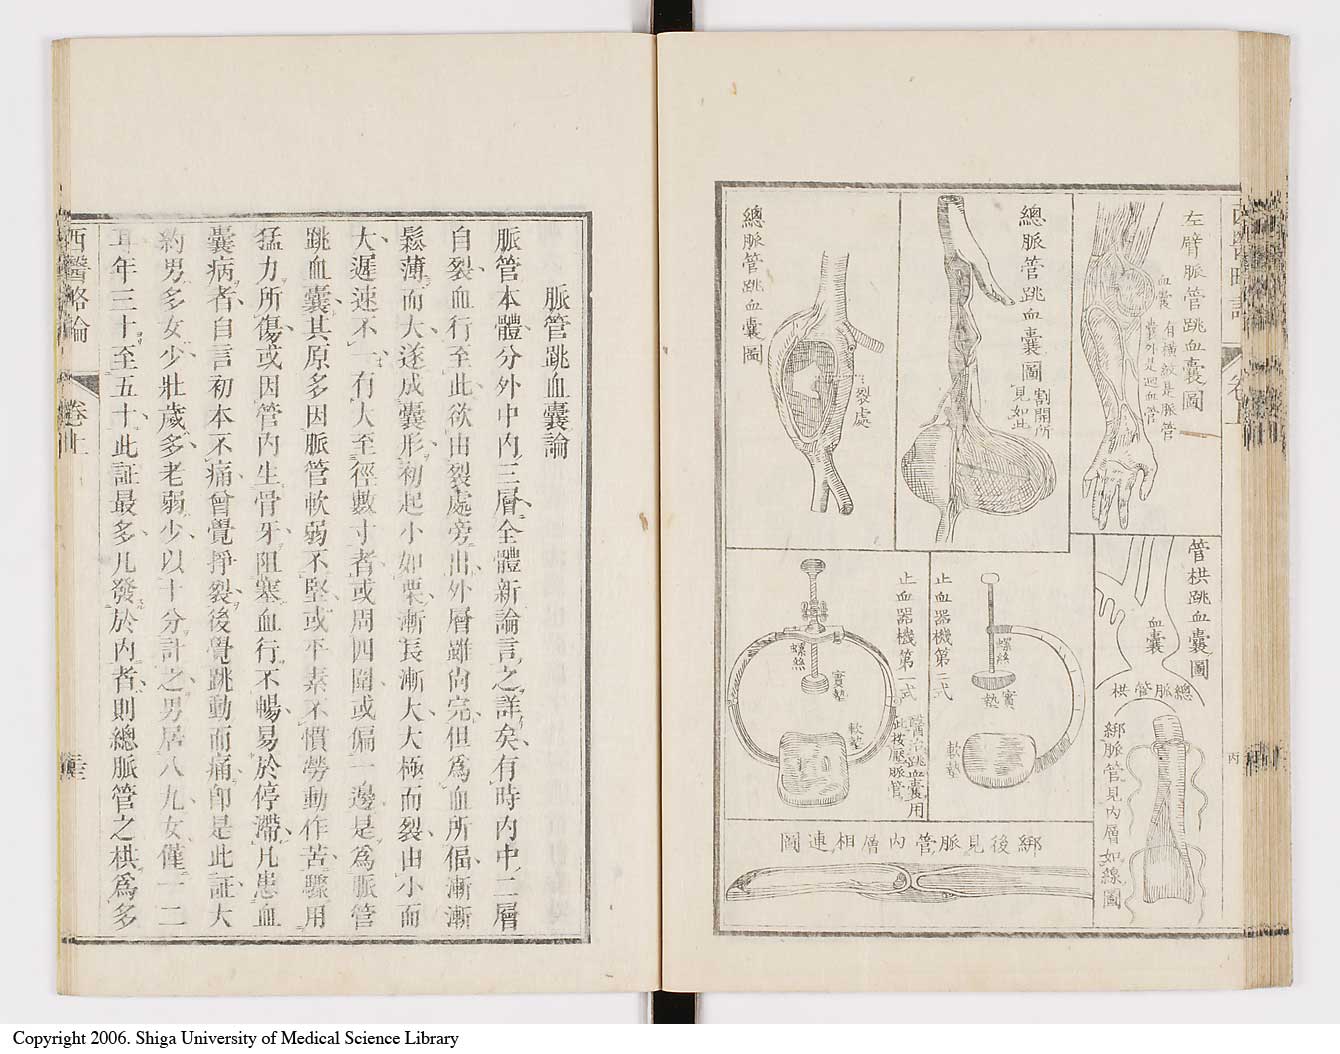 左臂脈管跳血囊圖
血囊
有橫紋是脈管
囊外是迴血管
總脈管跳血囊圖
割開所
見如此
總脈管跳血囊圖
裂處
管栱跳血囊圖
血囊
總脈管栱
綁脈管見內層如線圖
止血器機第二式
螺絲
實墊
軟墊
止血器機第一式
醫治跳血囊用
此按壓脈管
螺絲
實墊
軟墊
綁後見脈管內層相連圖
丙
脈管跳血囊論
脈管本體分外中內三層全體新論言之詳矣有時內中二層
自裂血行至此欲由裂處旁出外層雖尙完但爲血所偪漸漸
鬆薄而大遂成囊形初起小如栗漸長漸大大極而裂由小而
大遲速不一有大至徑數寸者或周四圍或偏一邊是爲脈管
跳血囊其原多因脈管軟弱不堅或平素不慣勞動作苦驟用
猛力所傷或因管內生骨牙阻塞血行不暢易於停滯凡患血
囊病者自言初本不痛曾覺掙裂後覺跳動而痛卽是此証大
約男多女少壯歲多老弱少以十分計之男居八九女僅一二
耳年三十至五十此証最多凡發於內者則總脈管之栱爲多
西醫略論
卷上
Copyright 2006. Shiga University of Medical Science Library